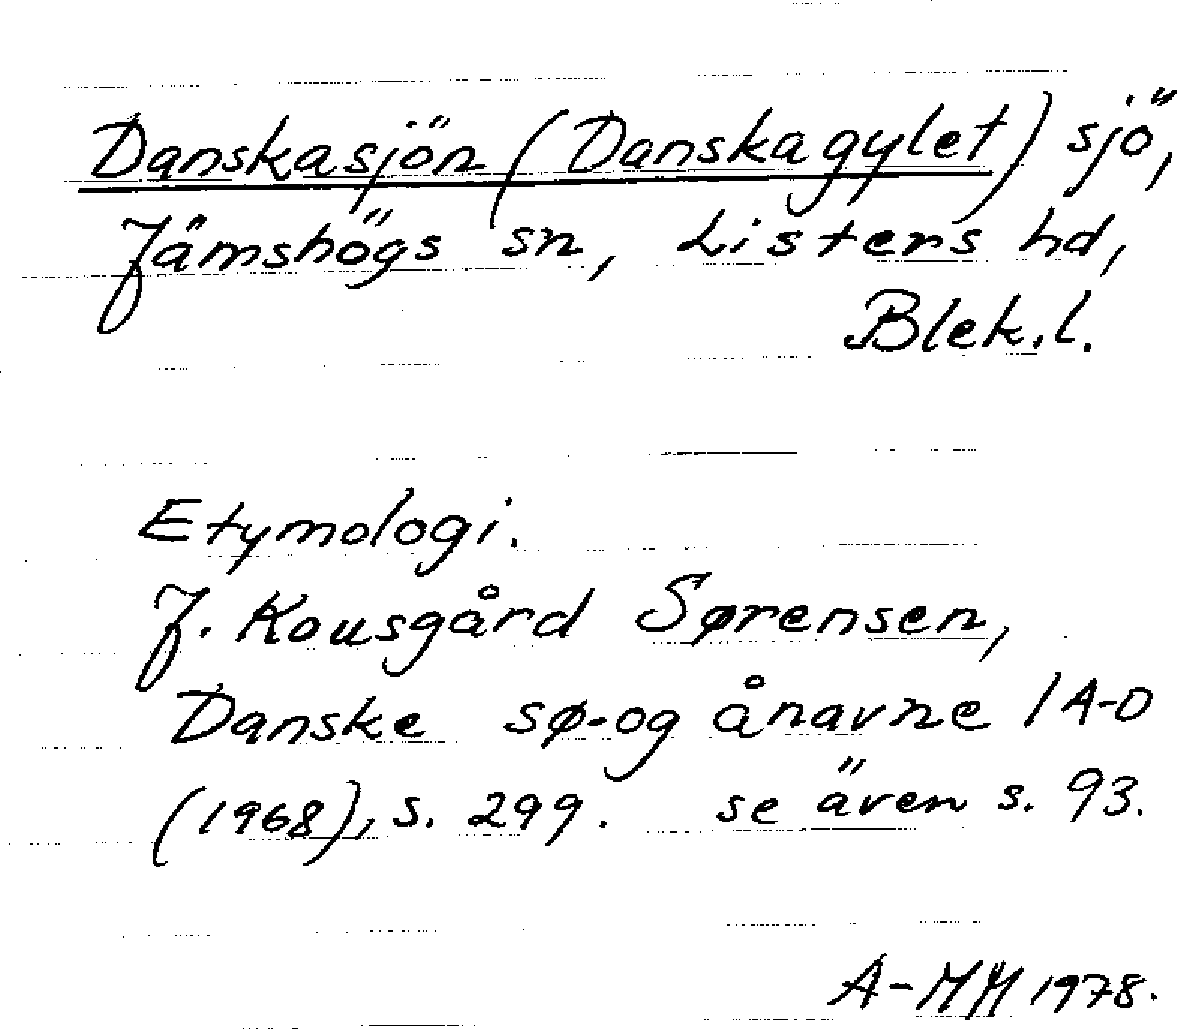 Danskasjön (Danskagylet) sjö,
Jämshögs sn, Listers hd,
Blek.l.
Etymologi.
J. Kousgård Sørensen,
Danske sø- og ånavne 1 A-D
(1968), s. 299. se även s. 93.
A-MH 1978.